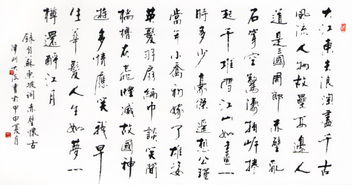 大江東去浪淘盡千古
風流人物故壘西邊人
道是三國周郎赤壁亂
石穿空驚濤拍岸捲
起千堆雪江山如畫一
時多少豪傑遙想公瑾
當年小喬初嫁了雄姿
英發羽扇綸巾談笑間
檣櫓灰飛煙滅故國神
遊多情應笑我早
生華髮人生如夢一
樽還酹江月
錄自蘇東坡詞赤壁懷古
書於甲申夏月